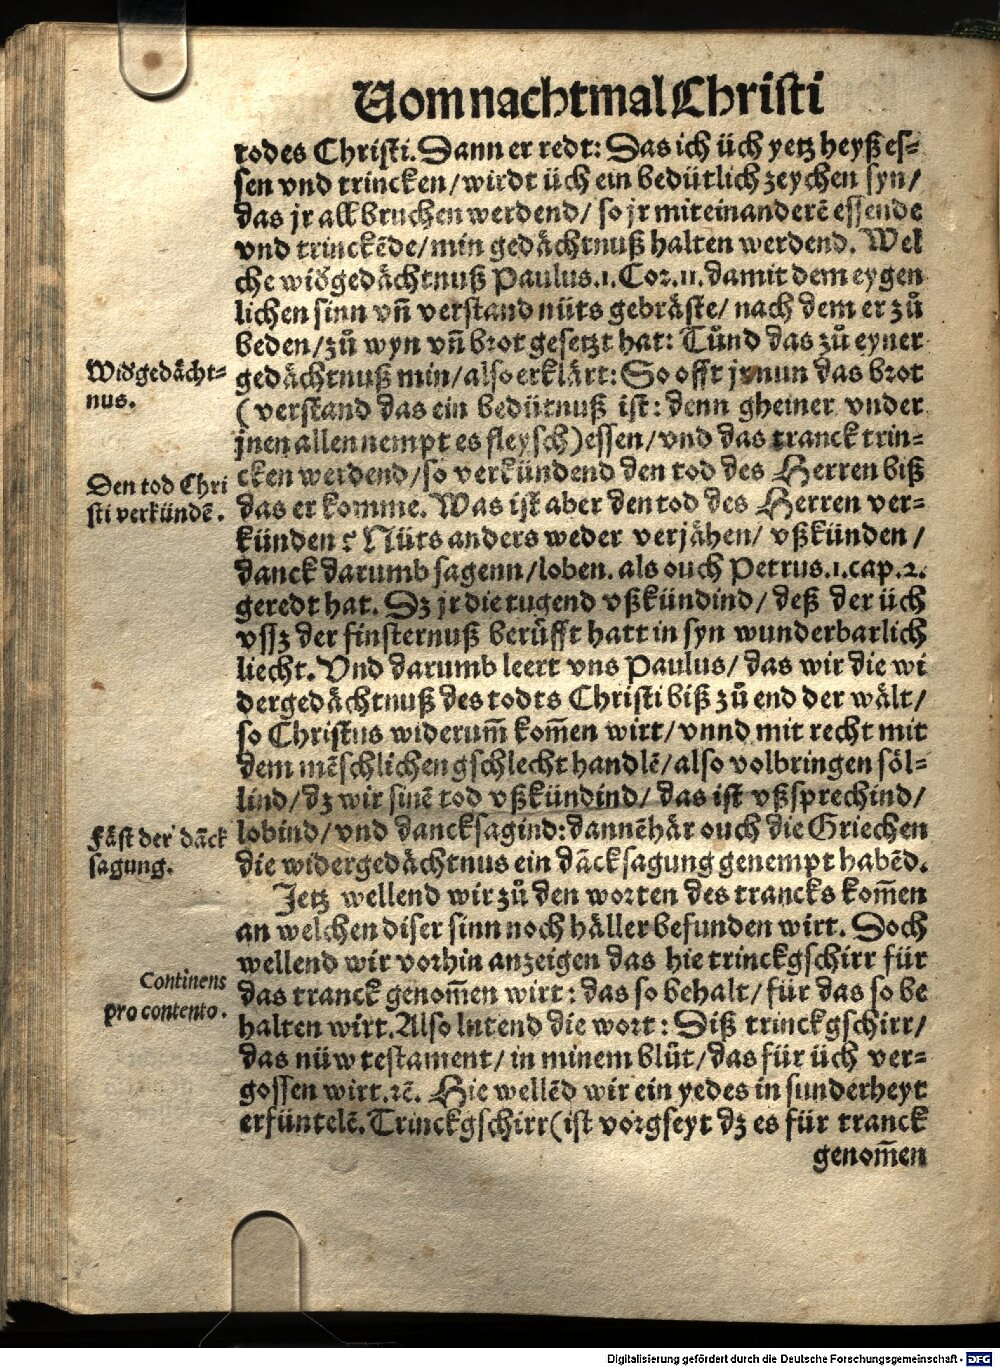 Vom nachtmal Christi
todes Christi. Dann er redt: Das ich üch yetz heyß es⸗
sen vnd trincken/ wirdt üch ein bedütlich zeychen syn/
das jr all bruchen werdend/ so jr miteinanderē essende
vnd trinckēde/ min gedächtnuß halten werdend. Wel
che wid̕gedächtnuß Paulus .1. Cor. 11. damit dem eygen
lichen sinn vñ verstand nüts gebräste/ nach dem er zů
beden/ zů wyn vñ brot gesetzt hat: Tůnd das zů eyner
Wid̕gedächt⸗
nus.
gedächtnuß min/ also erklärt: So offt jr nun das brot
(verstand das ein bedütnuß ist: denn gheiner vnder
jnen allen nempt es fleysch) essen/ vnd das tranck trin⸗
Den tod Chri
sti verkündē.
cken werdend/ so verkündend den tod des Herren biß
das er komme. Was ist aber den tod des Herren ver⸗
künden? Nüts anders weder verjähen/ vßkünden/
danck darumb sagenn/ loben. als ouch Petrus .1. cap. 2.
geredt hat. Dz jr die tugend vßkündind/ deß der üch
vssz der finsternuß berüfft hatt in syn wunderbarlich
liecht. Vnd darumb leert vns Paulus/ das wir die wi
dergedächtnuß des todts Christi biß zů end der wält/
so Christus widerum̄ kom̄en wirt/ vnnd mit recht mit
dem mēschlichen gschlecht handlē/ also volbringen söl⸗
lind/ dz wir sinē tod vßkündind/ das ist vßsprechind/
Fäst der dāck
sagung.
lobind/ vnd dancksagind: dannēhär ouch die Griechen
die widergedächtnus ein dācksagung genempt habēd.
Jetz wellend wir zů den worten des trancks kom̄en
an welchen diser sinn noch häller befunden wirt. Doch
wellend wir vorhin anzeigen das hie trinckgschirr für
Continens
pro contento.
das tranck genom̄en wirt: das so behalt/ für das so be
halten wirt. Also lutend die wort: Diß trinckgschirr/
das nüw testament/ in minem blůt/ das für üch ver⸗
gossen wirt. ꝛc̄. Hie wellēd wir ein yedes in sunderheyt
erfüntelē. Trinckgschirr (ist vorgseyt dz es für tranck
genom̄en
Digitalisierung gefördert durch die Deutsche Forschungsgemeinschaft - DFG